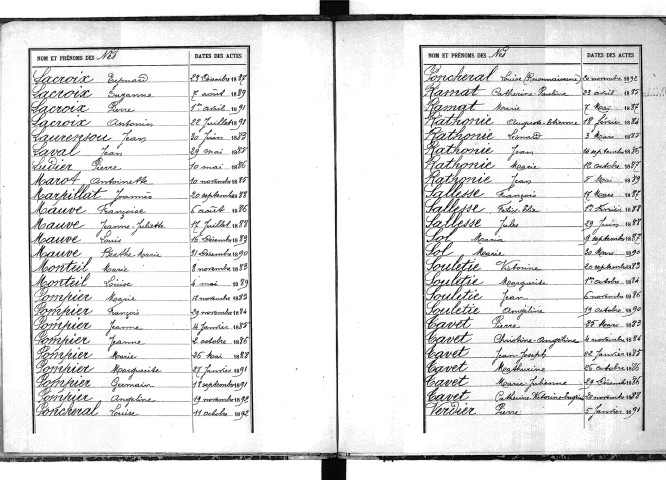 NOM ET PRÉNOMS DES Nés DATES DES ACTES
Lacroix Léonard 23 Décembre 1887
Lacroix Suzanne 7 août 1889
Lacroix Pierre 1er avril 1891
Lacroix Antonin 22 Juillet 1891
Laurensou Jean 30 Juin 1883
Laval Jean 29 mai 1885
Ludier Pierre 10 mai 1886
Marot Antoinette 10 novembre 1885
Marpillat Joannès 20 septembre 1888
Mauve Françoise 6 août 1886
Mauve Jeanne-Juliette 17 Juillet 1888
Mauve Louis 16 Décembre 1889
Mauve Berthe-Marie 31 Décembre 1890
Monteil Marie 8 novembre 1883
Monteil Louise 4 mai 1889
Pompier Marie 18 novembre 1883
Pompier François 29 novembre 1884
Pompier Jeanne 14 Janvier 1885
Pompier Jeanne 2 octobre 1886
Pompier Marie 26 Mai 1888
Pompier Marguerite 27 Janvier 1891
Pompier Germain 18 septembre 1891
Pompier Angeline 19 novembre 1892
Poncheral Louise 11 octobre 1892
NOM ET PRÉNOMS DES Nés DATES DES ACTES
Poncheral Louise (Reconnaissance) 20 novembre 1892
Ramat Catherine-Pauline 23 avril 1885
Ramat Marie 7 Mai 1887
Rathonie Auguste-Etienne 18 février 1884
Rathonie Léonard 3 Mars 1885
Rathonie Jean 14 septembre 1886
Rathonie Marie 12 octobre 1887
Rathonie Jean 5 Mai 1889
Sallesse François 17 Mars 1887
Sallesse Félix-Elie 1er Février 1888
Sallesse Jules 29 Juin 1888
Sol Maria 9 septembre 1887
Sol Marie 30 Mars 1890
Souletie Victorine 20 septembre 1883
Souletie Marguerite 1er octobre 1884
Souletie Jean 6 novembre 1886
Souletie Angéline 19 octobre 1890
Tavet Pierre 25 Mars 1883
Tavet Christine-Angeline 4 novembre 1884
Tavet Jean-Joseph 22 Janvier 1885
Tavet Mathurine 26 octobre 1886
Tavet Marie-Julienne 29 Décembre 1886
Tavet Catherine Victorine 20 novembre 1888
Verdier Pierre 5 Janvier 1891